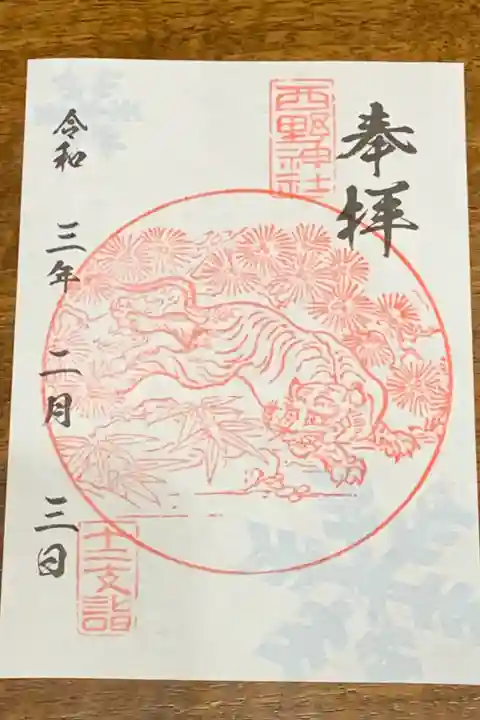 奉拝
西野神社
令和 三年 二月 三日
十二支詣